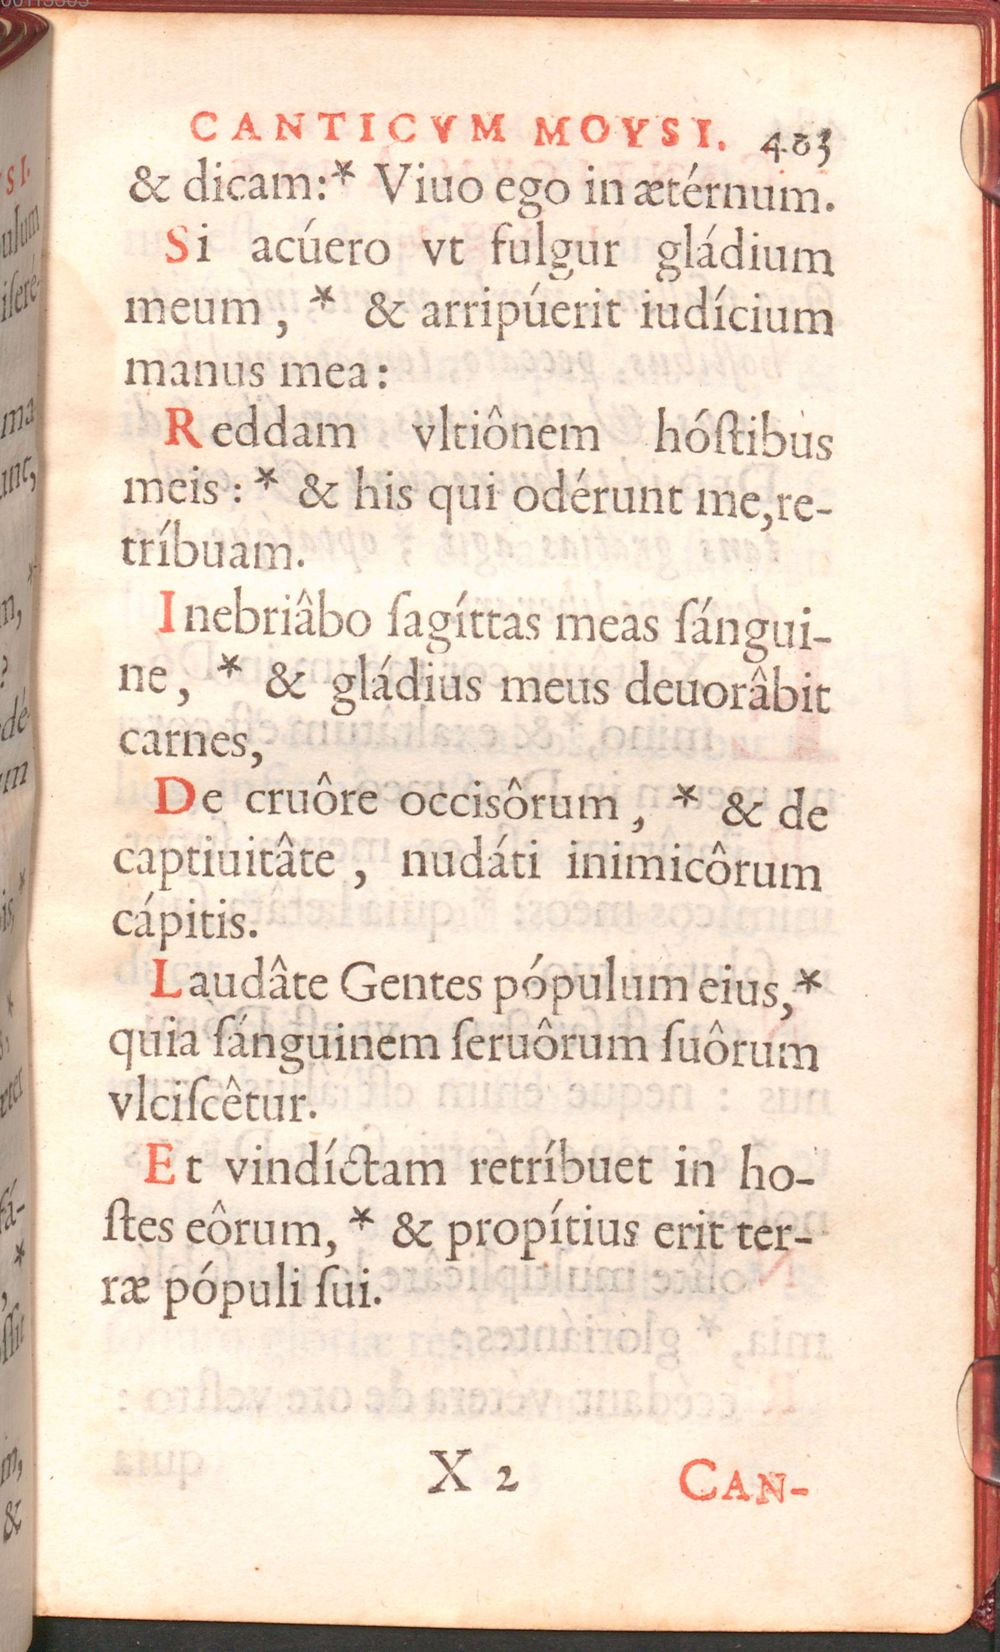 CANTICVM MOYSI. 483
& dicam:* Viuo ego in ætérnum.
Si acúero vt fulgur gládium
meum, * & arripúerit iudícium
manus mea:
Reddam vltiônem hóſtibus
meis: * & his qui odérunt me, re-
tríbuam.
Inebriâbo ſagíttas meas ſángui-
ne, * & gládius meus deuorâbit
carnes,
De cruôre occisôrum, * & de
captiuitâte, nudáti inimicôrum
cápitis.
Laudâte Gentes pópulum eius, *
quia ſánguinem ſeruôrum ſuôrum
vlciſcêtur.
Et vindíctam retríbuet in ho-
ſtes eôrum, * & propítius erit ter-
ræ pópuli ſui.
X 2
CAN-